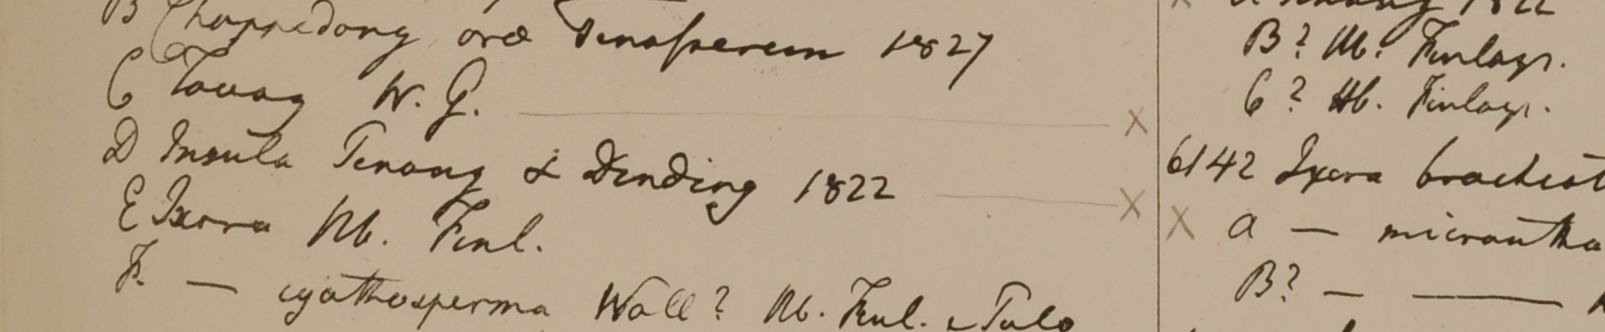 B Chappedong oræ Tenasserim 1827
C Tavoy W. G. ——— X
D Insula Penang & Dinding 1822 ——— X
E Ixora Hb. Finl.
F. — cyathosperma Wall? Hb. Finl. e Pulo
1822
B? Hb. Finlays.
C? Hb. Finlays.
6142 Ixora brachiat
X a — micrantha
B? — ———